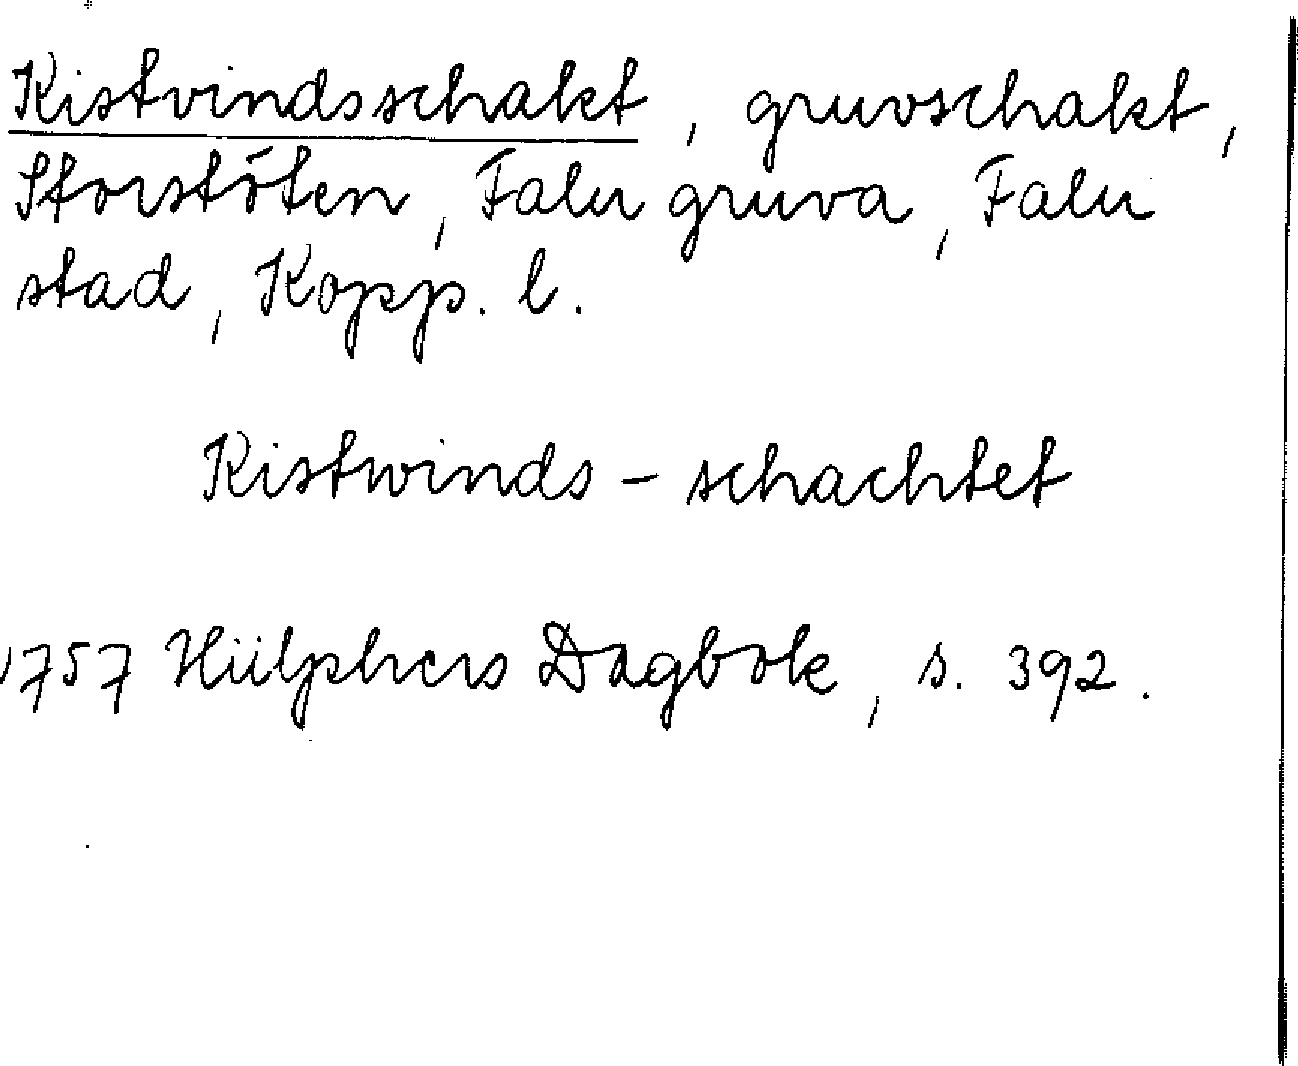 Kistvindsschakt, gruvschakt,
Storstöten, Falu gruva, Falu
stad, Kopp. l.
Kistwinds-schachtet
1757 Hülphers Dagbok, s. 392.